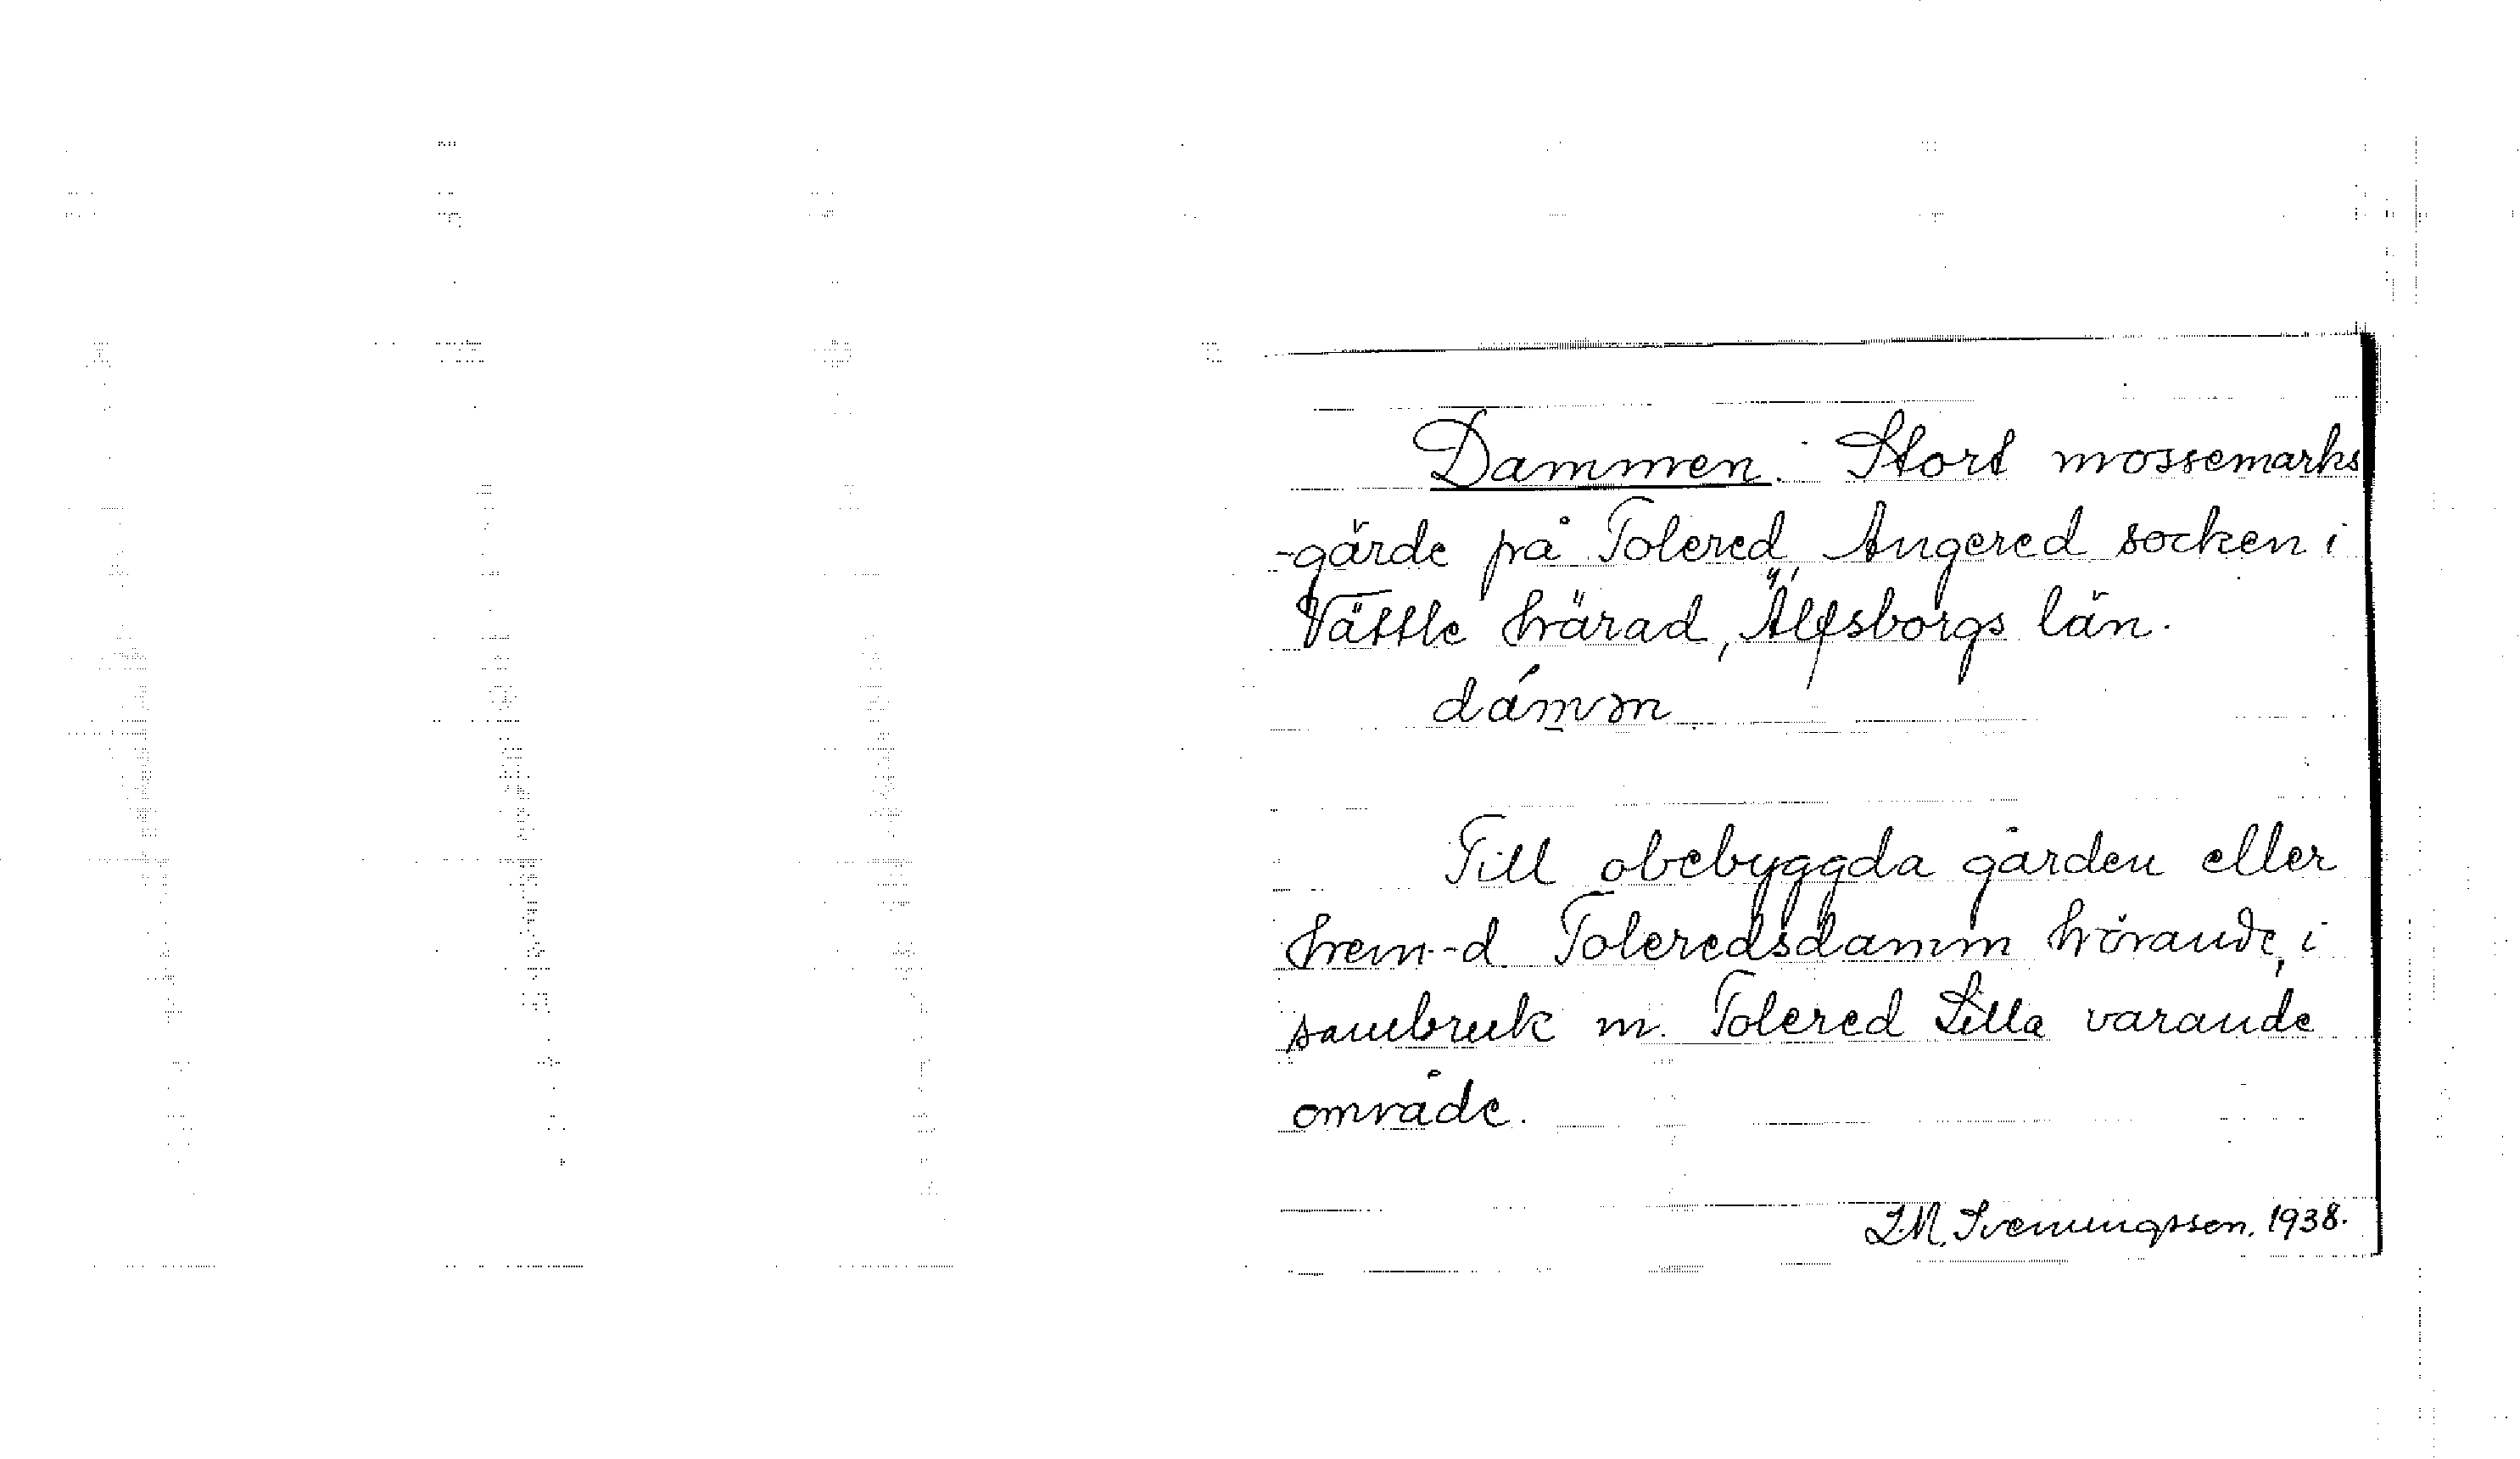 Dammen. Stort mossemarks
-gärde på Tolered, Angered socken i
Vättle härad, Älfsborgs län.
dámm
Till obebyggda gården eller
hem-d Toleredsdamm hörande, i
sambruk m. Tolered Lilla varande
område.
L.M. Svenungsson. 1938.